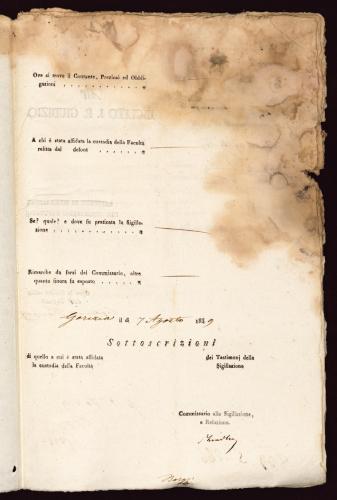 Ove si trova il Contante, Preziosi ed Obbli-
gazioni . . . . . . . . . . . . . "
A chi è stata affidata la custodia della Facoltà
relitta dal defont . . . . . . . . . "
Se? quale? e dove fu praticata la Sigilla-
zione . . . . . . . . . . . . . . "
Rimarche da farsi dal Commissario, oltre
quanto finora fu esposto . . . . . . "
Gorizia li di 7 Agosto 1849
Sottoscrizioni
di quello a cui è stata affidata
la custodia della Facoltà
dei Testimonj della
Sigillazione
Commissario alla Sigillazione,
e Relazione.